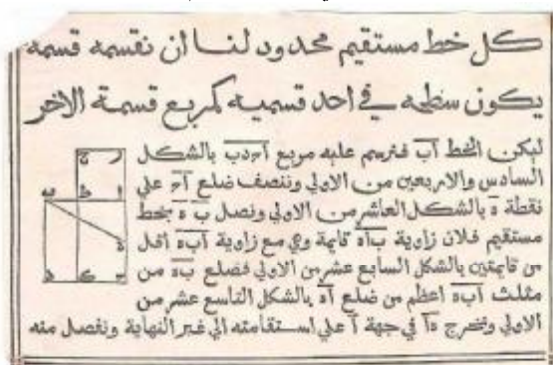 كل خط مستقيم محدود لنا ان نقسمه قسمة
يكون سطحه في احد قسميه كمربع قسمة الاخر
ليكن الخط آب فنرسم عليه مربع آحدب بالشكل
السادس والاربعين من الاولي وننصف ضلع آح علي
نقطة ه بالشكل العاشر من الاولي ونصل ب ه بخط
مستقيم فلان زاوية بآه قايمة وهي مع زاوية آبه اقل
من قايمتين بالشكل السابع عشر من الاولي فضلع به من
مثلث آبه اعظم من ضلع آه بالشكل التاسع عشر من
الاولي ونخرج هآ في جهة آ علي استقامته الي غير النهاية ونفصل منه